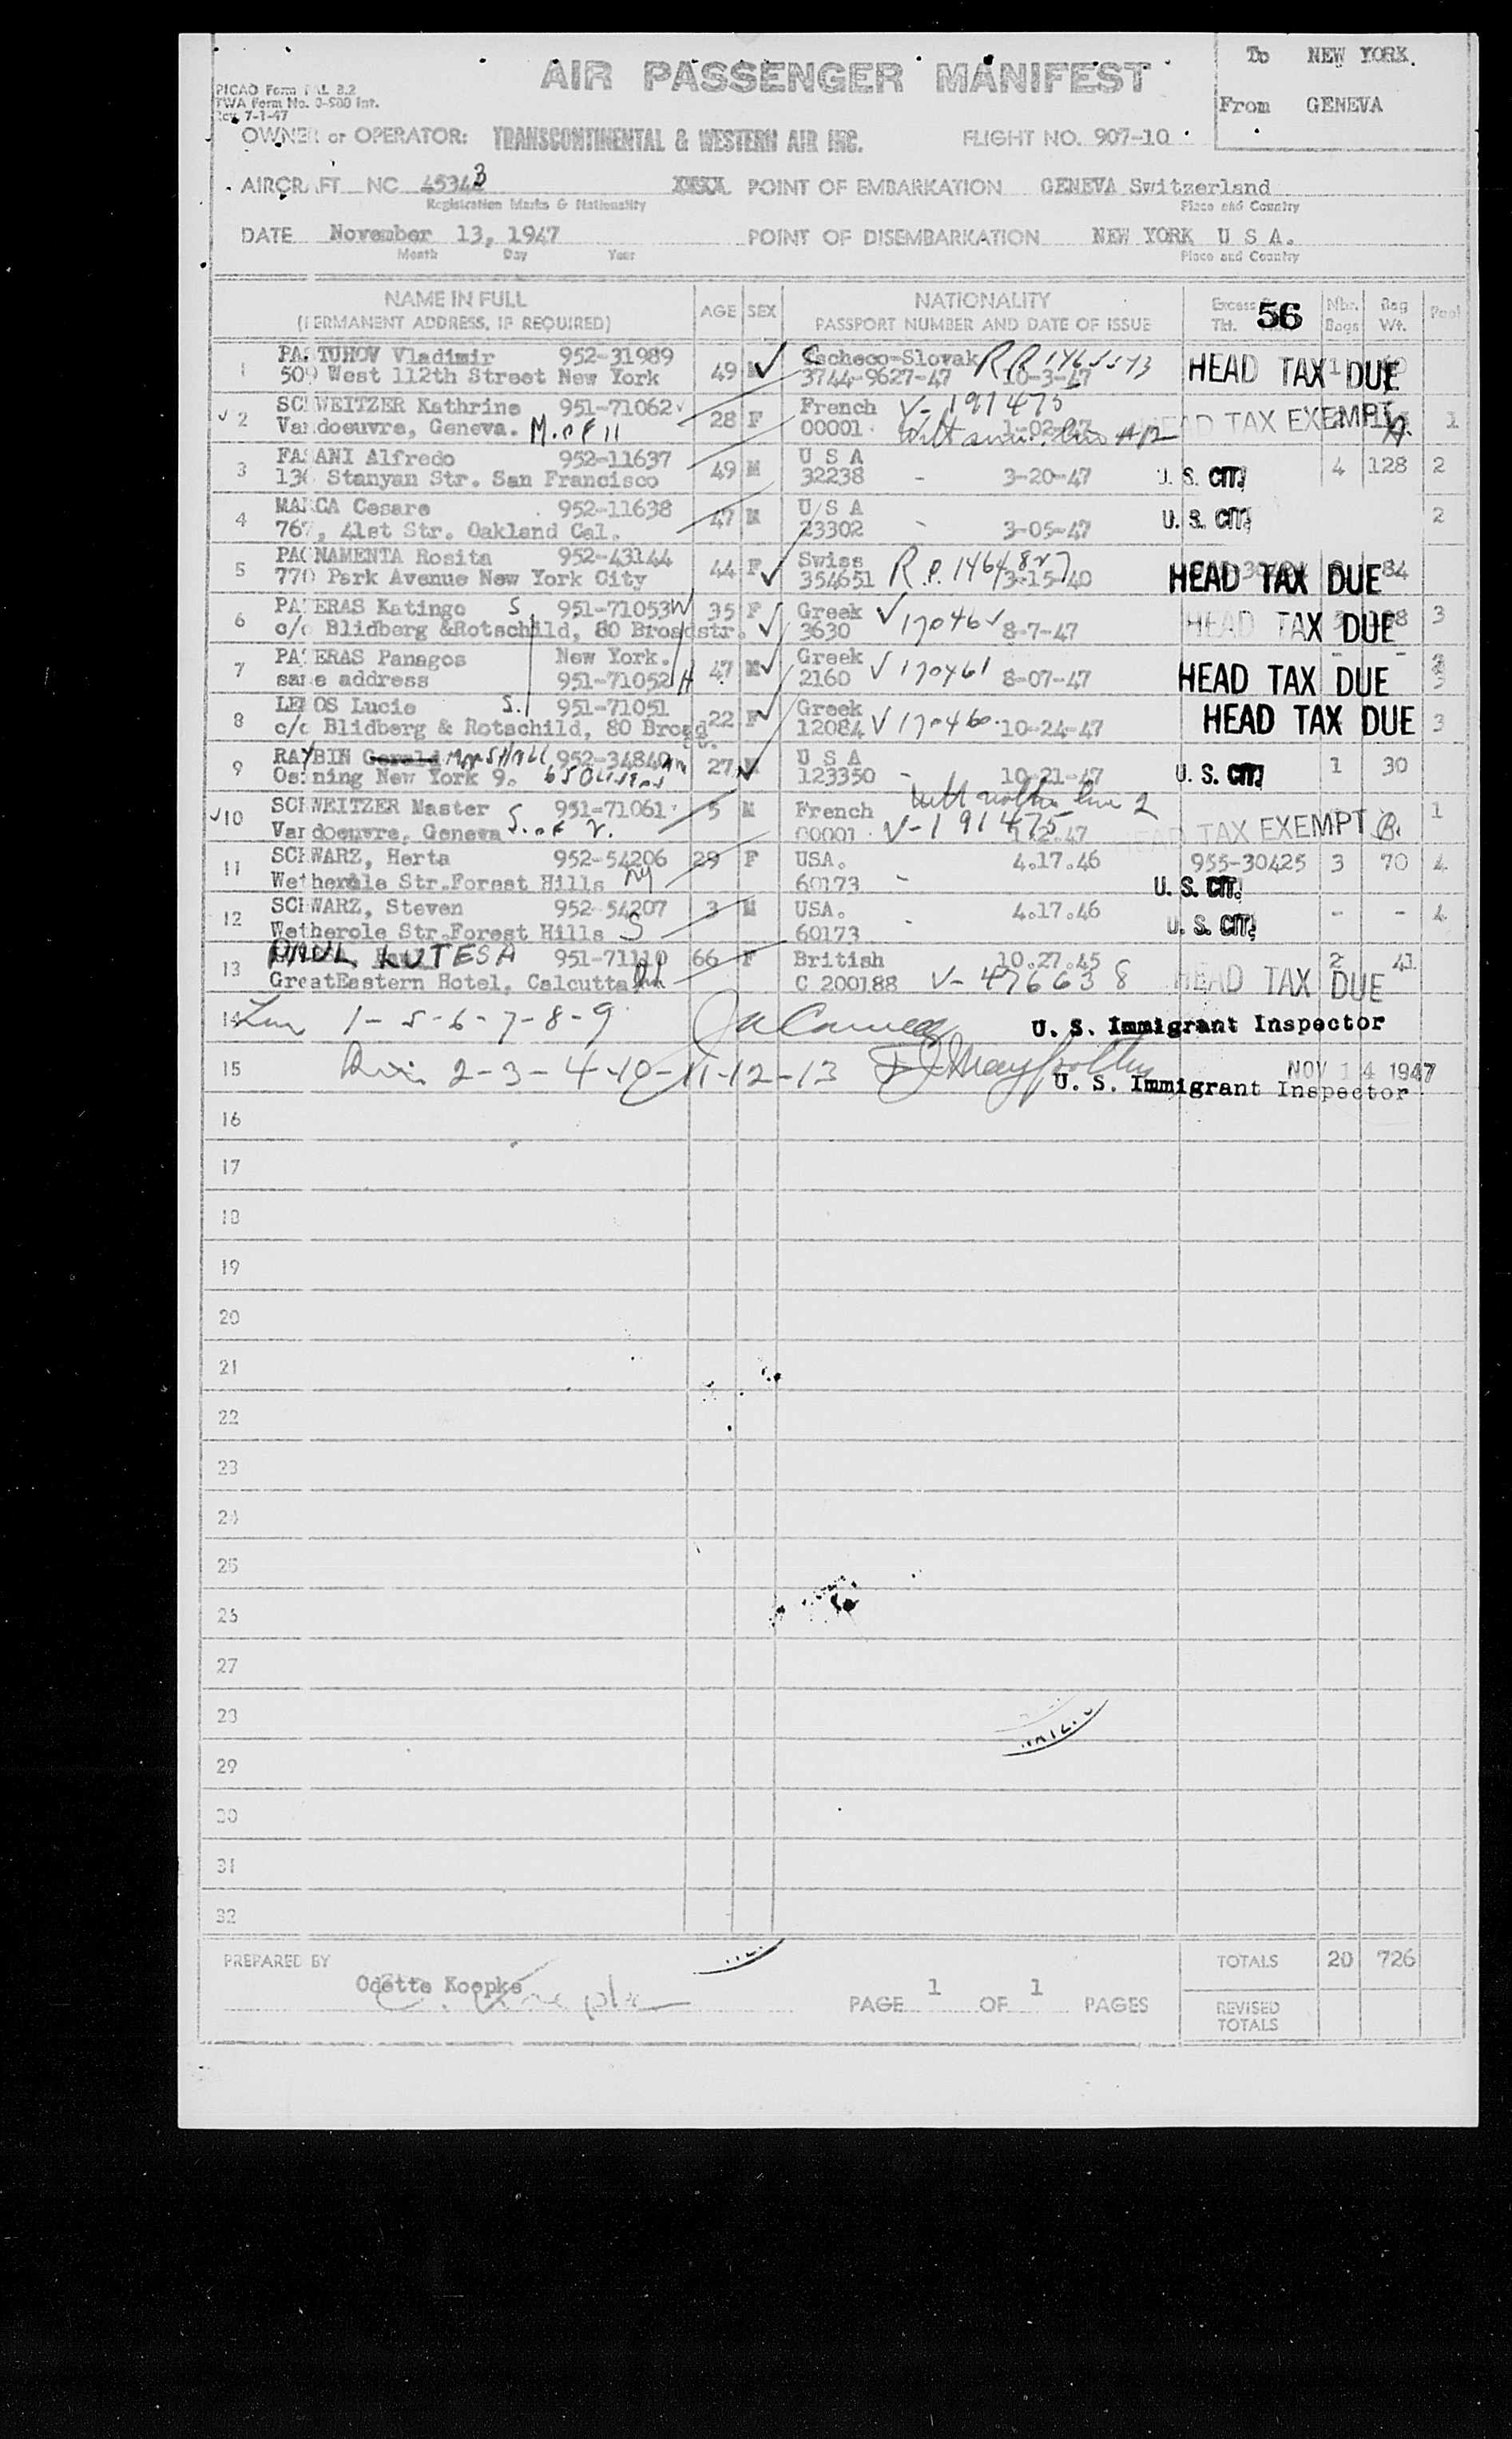 To NEW YORK.
AIR PASSENGER MANIFEST
PICAO Form FAL B.2
TWA Form No. 0-500 Int.
Rev 7-1-47
From GENEVA
OWNER or OPERATOR: TRANSCONTINENTAL & WESTERN AIR INC. FLIGHT NO. 907-10
AIRCRAFT NC 45343 XXXX POINT OF EMBARKATION GENEVA Switzerland
Registration Marks & Nationality Place and Country
DATE November 13, 1947 POINT OF DISEMBARKATION NEW YORK U S A.
Month Day Year Place and Country
NAME IN FULL AGE SEX NATIONALITY Excess 56 Nbr. Bag Pool
(PERMANENT ADDRESS, IF REQUIRED) PASSPORT NUMBER AND DATE OF ISSUE Tkt. Bags Wt.
1 PASTUHOV Vladimir 952-31989 49 M Czcheco-Slovak HEAD TAX DUE
509 West 112th Street New York 3744-9627-47 10-3-47
2 SCHWEITZER Kathrine 951-71062 28 F French V-191475 HEAD TAX EXEMPT 1
Vandoeuvre, Geneva. 00001 1-02-47
3 FASANI Alfredo 952-11637 49 M U S A 4 128 2
136 Stanyan Str. San Francisco 32238 - 3-20-47 U. S. CIT.
4 MARCA Cesare 952-11638 47 M U S A 2
767, 41st Str. Oakland Cal. 23302 - 3-05-47 U. S. CIT.
5 PAGNAMENTA Rosita 952-43144 44 F Swiss 84
770 Park Avenue New York City 354651 3-15-40 HEAD TAX DUE
6 PATERAS Katingo S 951-71053 W 35 F Greek V 3
c/o Blidberg &Rotschild, 80 Broadstr. 3630 8-7-47 HEAD TAX DUE
7 PATERAS Panagos New York. 47 M Greek V 170461 - -
same address 951-71052 H 2160 8-07-47 HEAD TAX DUE
8 LEMOS Lucie S. 951-71051 22 F Greek V 170460 HEAD TAX DUE 3
c/o Blidberg & Rotschild, 80 Broad 12084 10-24-47
9 RAYBIN MARSHALL 952-34840 27 M U S A 1 30
Ossining New York 9. 123350 - 10-21-47 U. S. CIT.
10 SCHWEITZER Master 951-71061 5 M French 1
Vandoeuvre, Geneva S. of 2. 00001 V-191475 1.2.47 HEAD TAX EXEMPT
11 SCHWARZ, Herta 952-54206 29 F USA. 4.17.46 955-30425 3 70 4
Wetherole Str.Forest Hills NY 60173 - U. S. CIT.
12 SCHWARZ, Steven 952-54207 3 M USA. 4.17.46 - - 4
Wetherole Str.Forest Hills S 60173 - U. S. CIT.
13 PAUL KUTESA 951-71110 66 F British 10.27.45 2 41
GreatEastern Hotel, Calcutta C 200188 V-476638 HEAD TAX DUE
14 1-5-6-7-8-9 U. S. Immigrant Inspector
15 2-3-4-10-11-12-13 NOV 14 1947
U. S. Immigrant Inspector
16
17
18
19
20
21
22
23
24
25
26
27
28
29
30
31
32
PREPARED BY TOTALS 20 726
Odette Koepke
PAGE 1 OF 1 PAGES REVISED
TOTALS